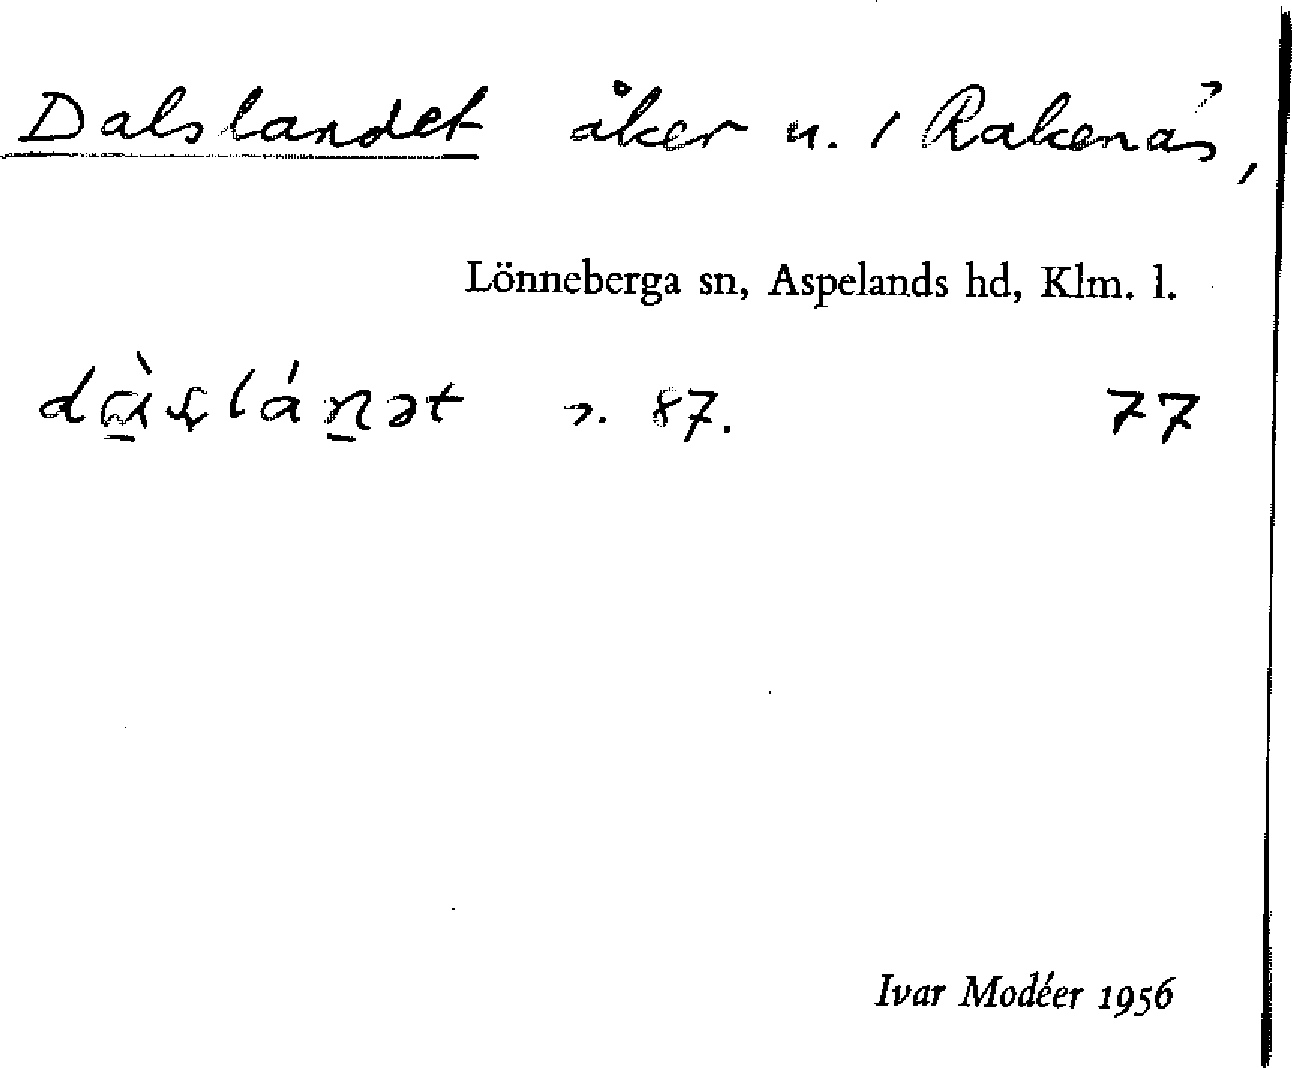 Dalslandet åker n. i Rakenäs,
Lönneberga sn, Aspelands hd, Klm. l.
87. 77
Ivar Modéer 1956